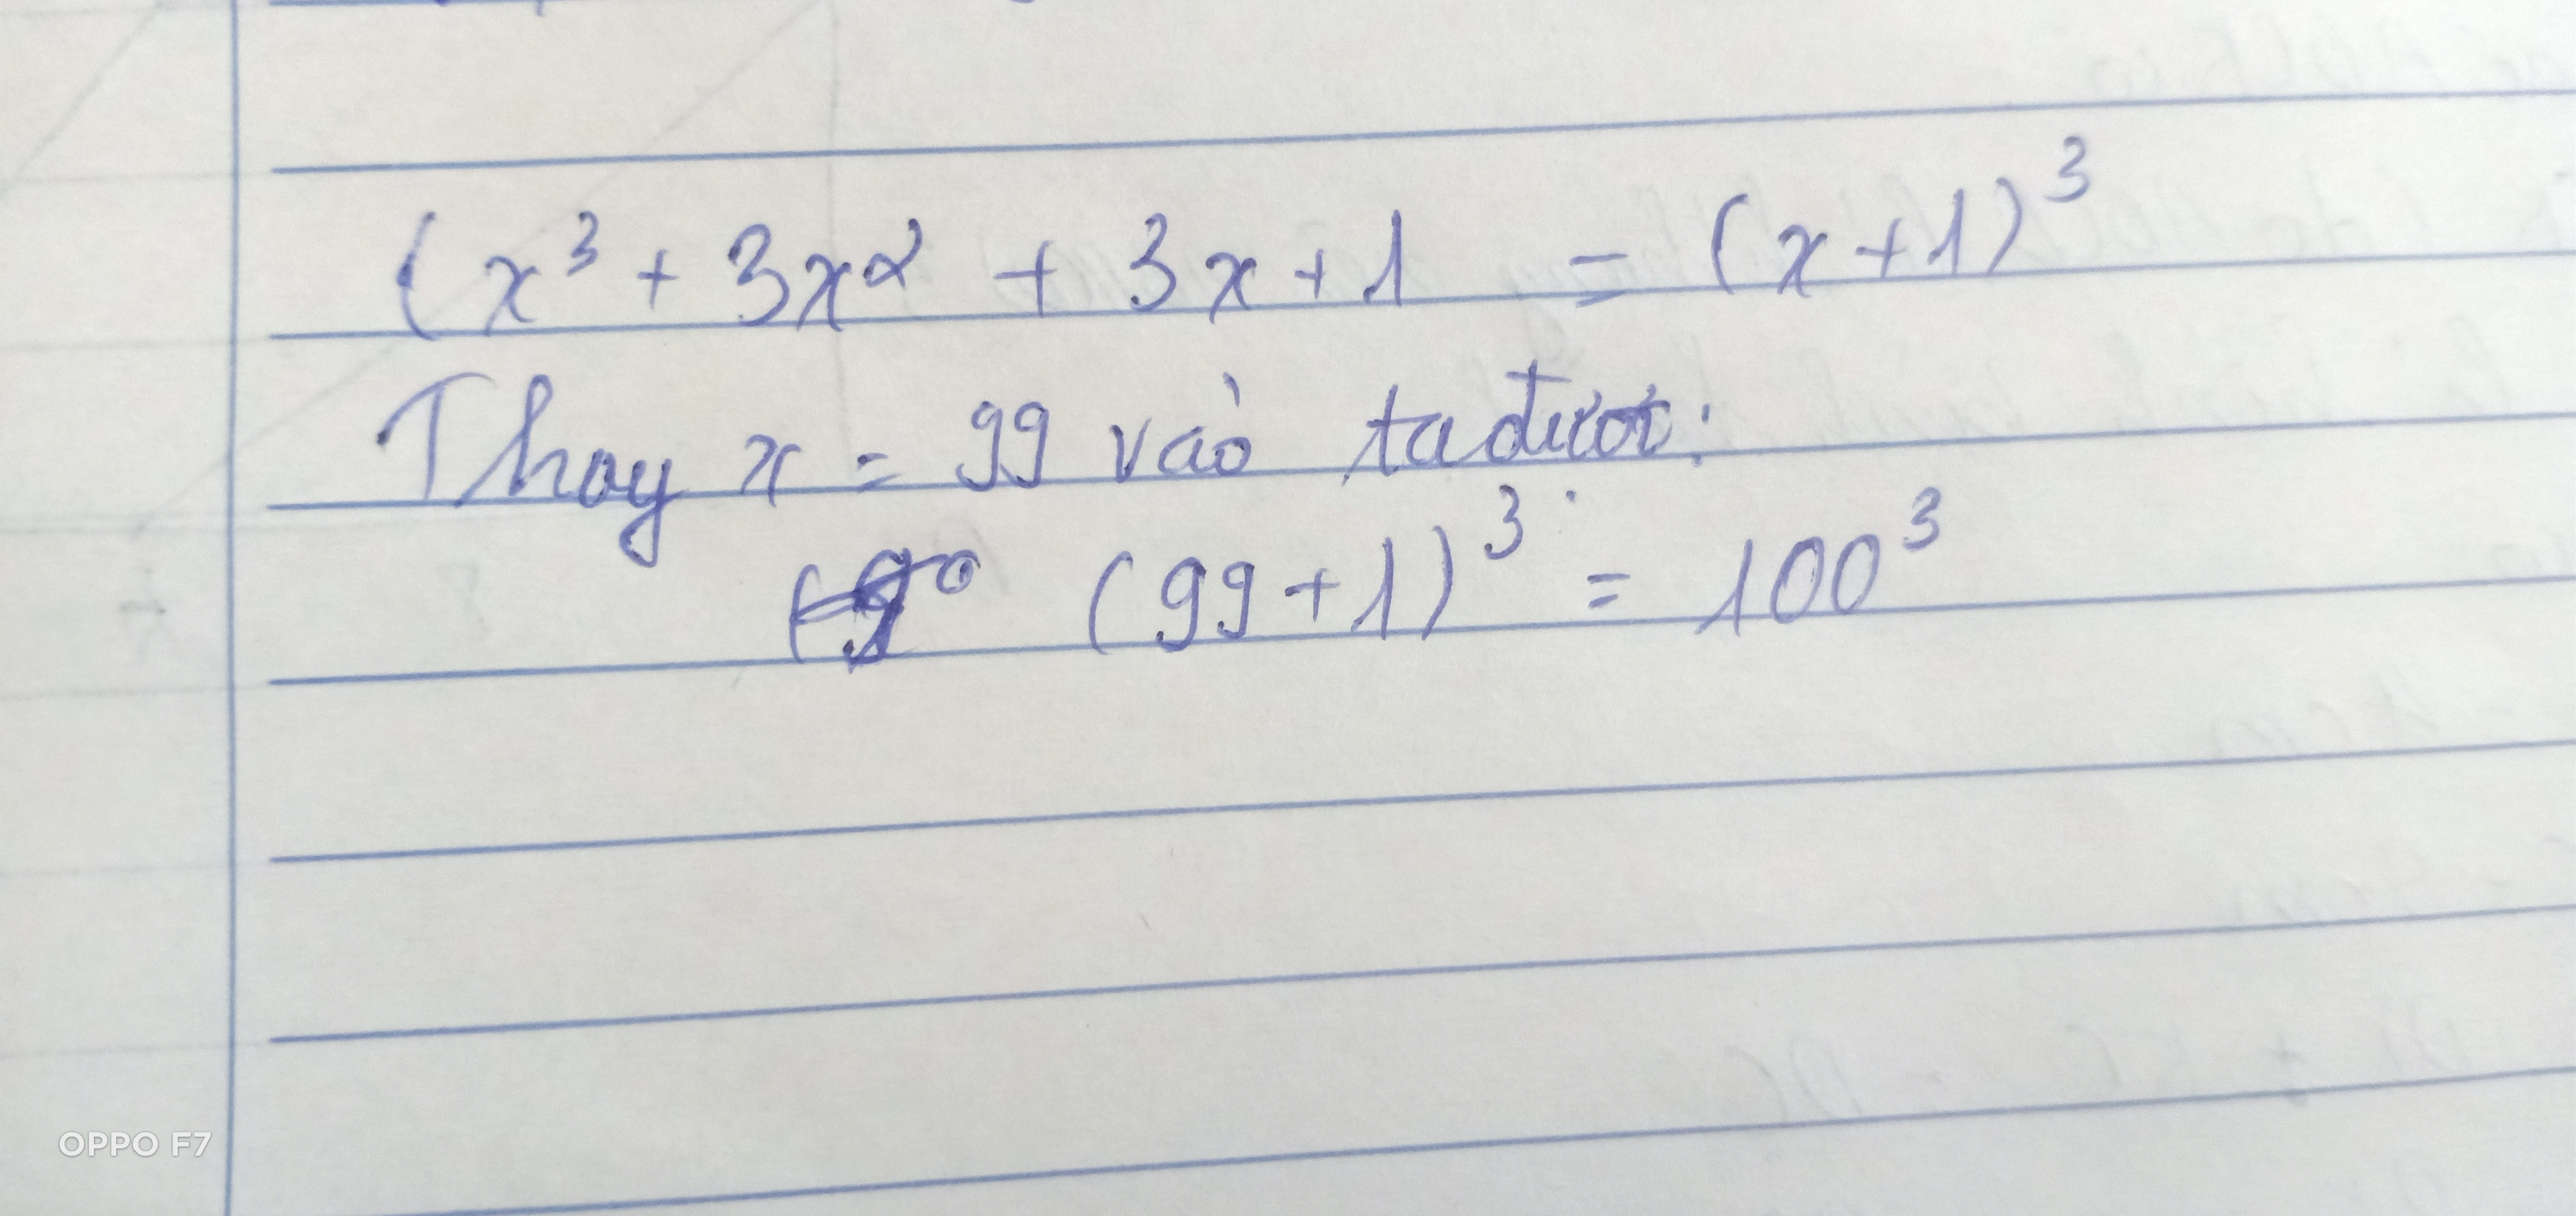 (x³ + 3x² + 3x + 1 = (x + 1)³
Thay x = 99 vào ta được:
(99 + 1)³ = 100³
OPPO F7